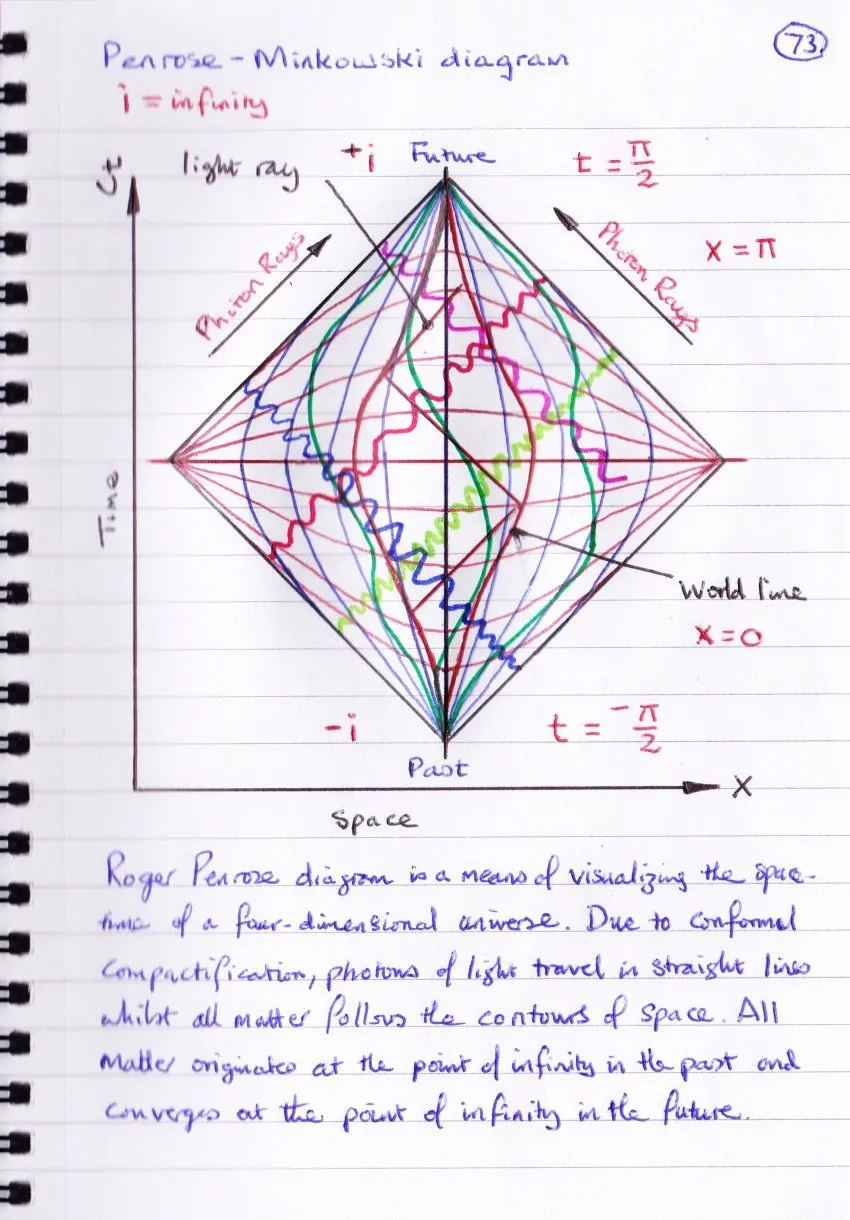 73
Penrose - Minkowski diagram
i = infinity
ct
light ray
+i
Future
t = π/2
Photon Rays
Photon Rays
x = π
Time
World line
x = 0
-i
t = -π/2
Past
X
Space
Roger Penrose diagram is a means of visualizing the space-
time of a four-dimensional universe. Due to conformal
compactification, photons of light travel in straight lines
whilst all matter follows the contours of space. All
Matter originates at the point of infinity in the past and
converges at the point of infinity in the future.